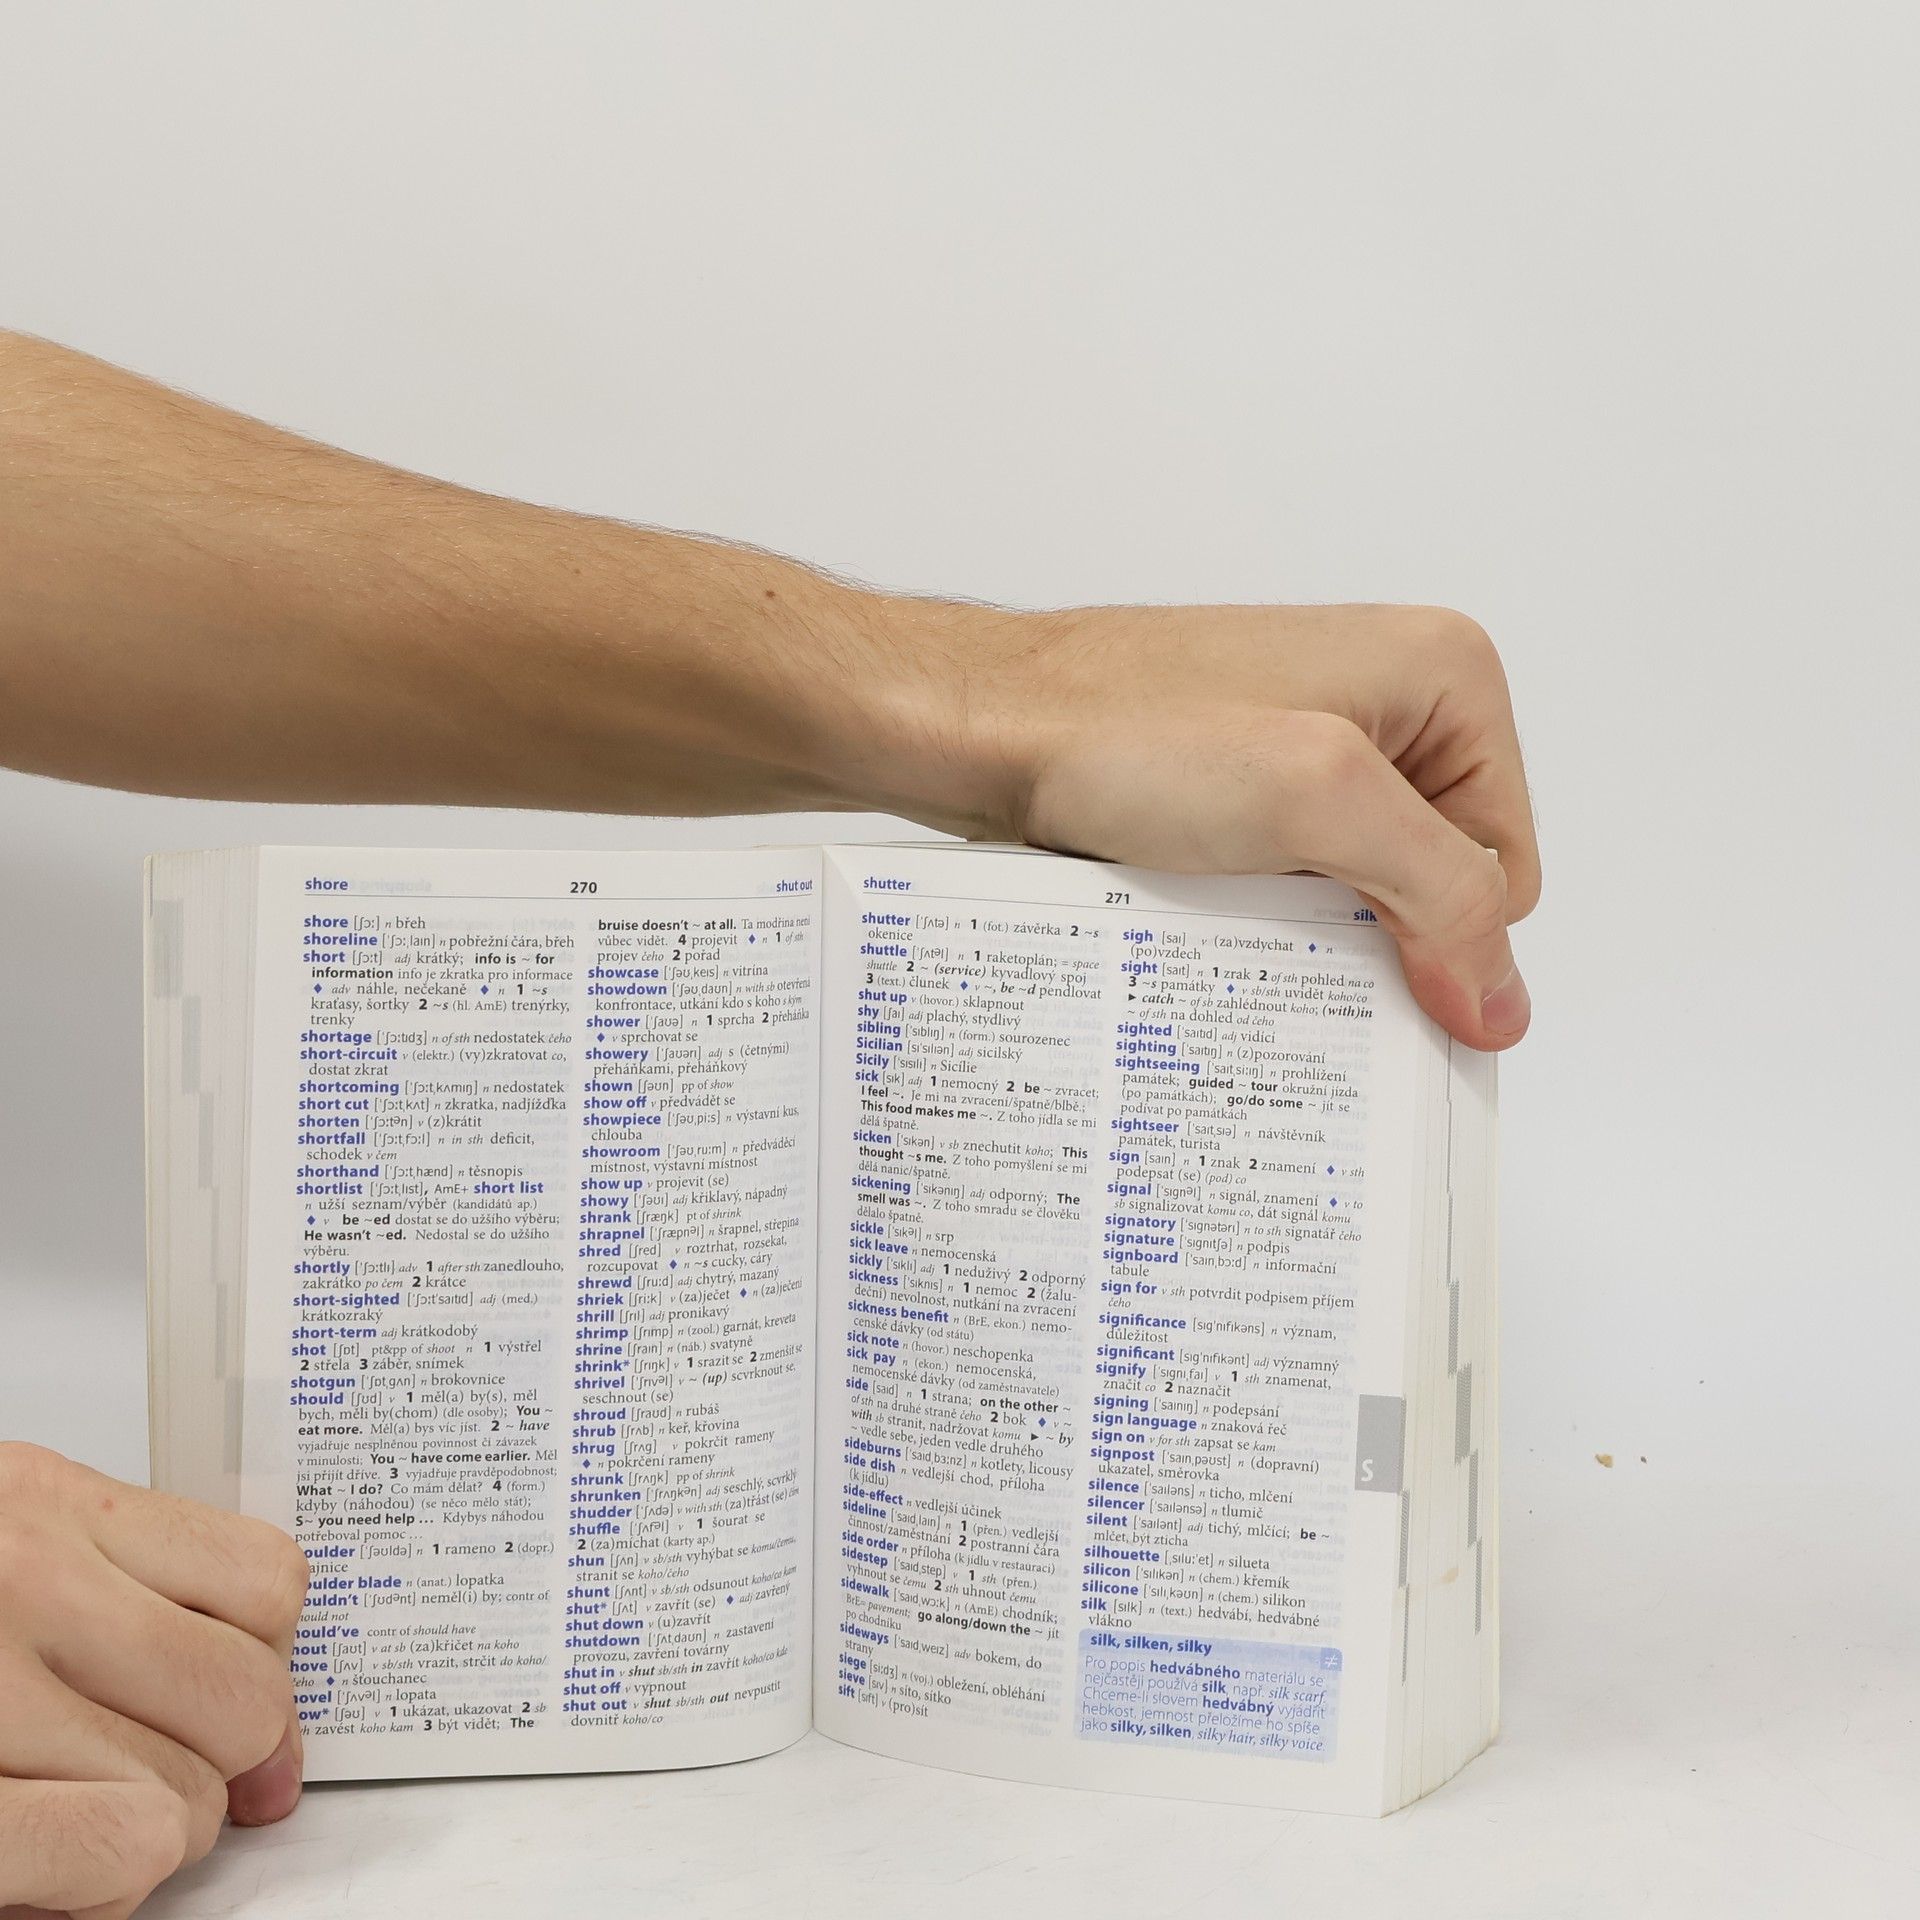 shore 270 shut out
shore [ʃɔː] n břeh
shoreline [ˈʃɔːˌlaɪn] n pobřežní čára, břeh
short [ʃɔːt] adj krátký; info is ~ for
information info je zkratka pro informace
♦ adv náhle, nečekaně ♦ n 1 ~s
kraťasy, šortky 2 ~s (hl. AmE) trenýrky,
trenky
shortage [ˈʃɔːtɪdʒ] n of sth nedostatek čeho
short-circuit v (elektr.) (vy)zkratovat co,
dostat zkrat
shortcoming [ˈʃɔːtˌkʌmɪŋ] n nedostatek
short cut [ˈʃɔːtˌkʌt] n zkratka, nadjížďka
shorten [ˈʃɔːtᵊn] v (z)krátit
shortfall [ˈʃɔːtˌfɔːl] n in sth deficit,
schodek v čem
shorthand [ˈʃɔːtˌhænd] n těsnopis
shortlist [ˈʃɔːtˌlɪst], AmE+ short list
n užší seznam/výběr (kandidátů ap.)
♦ v be ~ed dostat se do užšího výběru;
He wasn't ~ed. Nedostal se do užšího
výběru.
shortly [ˈʃɔːtlɪ] adv 1 after sth zanedlouho,
zakrátko po čem 2 krátce
short-sighted [ˈʃɔːtˈsaɪtɪd] adj (med.)
krátkozraký
short-term adj krátkodobý
shot [ʃɒt] pt&pp of shoot n 1 výstřel
2 střela 3 záběr, snímek
shotgun [ˈʃɒtˌgʌn] n brokovnice
should [ʃʊd] v 1 měl(a) by(s), měl
bych, měli by(chom) (dle osoby); You ~
eat more. Měl(a) bys víc jíst. 2 ~ have
vyjadřuje nesplněnou povinnost či závazek
v minulosti; You ~ have come earlier. Měl
jsi přijít dříve. 3 vyjadřuje pravděpodobnost;
What ~ I do? Co mám dělat? 4 (form.)
kdyby (náhodou) (se něco mělo stát);
S~ you need help ... Kdybys náhodou
potřeboval pomoc ...
oulder [ˈʃəʊldə] n 1 rameno 2 (dopr.)
ajnice
oulder blade n (anat.) lopatka
ouldn't [ˈʃʊdᵊnt] neměl(i) by; contr of
hould not
hould've contr of should have
hout [ʃaʊt] v at sb (za)křičet na koho
hove [ʃʌv] v sb/sth vrazit, strčit do koho/
čeho ♦ n šťouchanec
hovel [ˈʃʌvᵊl] n lopata
ow* [ʃəʊ] v 1 ukázat, ukazovat 2 sb
zavést koho kam 3 být vidět; The
bruise doesn't ~ at all. Ta modřina není
vůbec vidět. 4 projevit ♦ n 1 of sth
projev čeho 2 pořad
showcase [ˈʃəʊˌkeɪs] n vitrína
showdown [ˈʃəʊˌdaʊn] n with sb otevřená
konfrontace, utkání kdo s koho s kým
shower [ˈʃaʊə] n 1 sprcha 2 přeháňka
♦ v sprchovat se
showery [ˈʃaʊərɪ] adj s (četnými)
přeháňkami, přeháňkový
shown [ʃəʊn] pp of show
show off v předvádět se
showpiece [ˈʃəʊˌpiːs] n výstavní kus,
chlouba
showroom [ˈʃəʊˌruːm] n předváděcí
místnost, výstavní místnost
show up v projevit (se)
showy [ˈʃəʊɪ] adj křiklavý, nápadný
shrank [ʃræŋk] pt of shrink
shrapnel [ˈʃræpnᵊl] n šrapnel, střepina
shred [ʃred] v roztrhat, rozsekat,
rozcupovat ♦ n ~s cucky, cáry
shrewd [ʃruːd] adj chytrý, mazaný
shriek [ʃriːk] v (za)ječet ♦ n (za)ječení
shrill [ʃrɪl] adj pronikavý
shrimp [ʃrɪmp] n (zool.) garnát, kreveta
shrine [ʃraɪn] n (náb.) svatyně
shrink* [ʃrɪŋk] v 1 srazit se 2 zmenšit se
shrivel [ˈʃrɪvᵊl] v ~ (up) scvrknout se,
seschnout (se)
shroud [ʃraʊd] n rubáš
shrub [ʃrʌb] n keř, křovina
shrug [ʃrʌg] v pokrčit rameny
♦ n pokrčení rameny
shrunk [ʃrʌŋk] pp of shrink
shrunken [ˈʃrʌŋkən] adj seschlý, scvrklý
shudder [ˈʃʌdə] v with sth (za)třást (se) čím
shuffle [ˈʃʌfᵊl] v 1 šourat se
2 (za)míchat (karty ap.)
shun [ʃʌn] v sb/sth vyhýbat se komu/čemu,
stranit se koho/čeho
shunt [ʃʌnt] v sb/sth odsunout koho/co kam
shut* [ʃʌt] v zavřít (se) ♦ adj zavřený
shut down v (u)zavřít
shutdown [ˈʃʌtˌdaʊn] n zastavení
provozu, zavření továrny
shut in v shut sb/sth in zavřít koho/co kde
shut off v vypnout
shut out v shut sb/sth out nevpustit
dovnitř koho/co
shutter 271 silk
shutter [ˈʃʌtə] n 1 (fot.) závěrka 2 ~s
okenice
shuttle [ˈʃʌtᵊl] n 1 raketoplán; = space
shuttle 2 ~ (service) kyvadlový spoj
3 (text.) člunek ♦ v ~, be ~d pendlovat
shut up v (hovor.) sklapnout
shy [ʃaɪ] adj plachý, stydlivý
sibling [ˈsɪblɪŋ] n (form.) sourozenec
Sicilian [sɪˈsɪlɪən] adj sicilský
Sicily [ˈsɪsɪlɪ] n Sicílie
sick [sɪk] adj 1 nemocný 2 be ~ zvracet;
I feel ~. Je mi na zvracení/špatně/blbě.;
This food makes me ~. Z toho jídla se mi
dělá špatně.
sicken [ˈsɪkən] v sb znechutit koho; This
thought ~s me. Z toho pomyšlení se mi
dělá nanic/špatně.
sickening [ˈsɪkənɪŋ] adj odporný; The
smell was ~. Z toho smradu se člověku
dělalo špatně.
sickle [ˈsɪkᵊl] n srp
sick leave n nemocenská
sickly [ˈsɪklɪ] adj 1 neduživý 2 odporný
sickness [ˈsɪknɪs] n 1 nemoc 2 (žalu-
deční) nevolnost, nutkání na zvracení
sickness benefit n (BrE, ekon.) nemo-
censké dávky (od státu)
sick note n (hovor.) neschopenka
sick pay n (ekon.) nemocenská,
nemocenské dávky (od zaměstnavatele)
side [saɪd] n 1 strana; on the other ~
of sth na druhé straně čeho 2 bok ♦ v ~
with sb stranit, nadržovat komu ► ~ by
~ vedle sebe, jeden vedle druhého
sideburns [ˈsaɪdˌbɜːnz] n kotlety, licousy
side dish n vedlejší chod, příloha
(k jídlu)
side-effect n vedlejší účinek
sideline [ˈsaɪdˌlaɪn] n 1 (přen.) vedlejší
činnost/zaměstnání 2 postranní čára
side order n příloha (k jídlu v restauraci)
sidestep [ˈsaɪdˌstep] v 1 sth (přen.)
vyhnout se čemu 2 sth uhnout čemu
sidewalk [ˈsaɪdˌwɔːk] n (AmE) chodník;
BrE= pavement; go along/down the ~ jít
po chodníku
sideways [ˈsaɪdˌweɪz] adv bokem, do
strany
siege [siːdʒ] n (voj.) obležení, obléhání
sieve [sɪv] n síto, sítko
sift [sɪft] v (pro)sít
sigh [saɪ] v (za)vzdychat ♦ n
(po)vzdech
sight [saɪt] n 1 zrak 2 of sth pohled na co
3 ~s památky ♦ v sb/sth uvidět koho/co
► catch ~ of sb zahlédnout koho; (with)in
~ of sth na dohled od čeho
sighted [ˈsaɪtɪd] adj vidící
sighting [ˈsaɪtɪŋ] n (z)pozorování
sightseeing [ˈsaɪtˌsiːɪŋ] n prohlížení
památek; guided ~ tour okružní jízda
(po památkách); go/do some ~ jít se
podívat po památkách
sightseer [ˈsaɪtˌsɪə] n návštěvník
památek, turista
sign [saɪn] n 1 znak 2 znamení ♦ v sth
podepsat (se) (pod) co
signal [ˈsɪgnᵊl] n signál, znamení ♦ v to
sb signalizovat komu co, dát signál komu
signatory [ˈsɪgnətərɪ] n to sth signatář čeho
signature [ˈsɪgnɪtʃə] n podpis
signboard [ˈsaɪnˌbɔːd] n informační
tabule
sign for v sth potvrdit podpisem příjem
čeho
significance [sɪgˈnɪfɪkəns] n význam,
důležitost
significant [sɪgˈnɪfɪkənt] adj významný
signify [ˈsɪgnɪˌfaɪ] v 1 sth znamenat,
značit co 2 naznačit
signing [ˈsaɪnɪŋ] n podepsání
sign language n znaková řeč
sign on v for sth zapsat se kam
signpost [ˈsaɪnˌpəʊst] n (dopravní)
ukazatel, směrovka
silence [ˈsaɪləns] n ticho, mlčení
silencer [ˈsaɪlənsə] n tlumič
silent [ˈsaɪlənt] adj tichý, mlčící; be ~
mlčet, být zticha
silhouette [ˌsɪluːˈet] n silueta
silicon [ˈsɪlɪkən] n (chem.) křemík
silicone [ˈsɪlɪˌkəʊn] n (chem.) silikon
silk [sɪlk] n (text.) hedvábí, hedvábné
vlákno
silk, silken, silky ≠
Pro popis hedvábného materiálu se
nejčastěji používá silk, např. silk scarf.
Chceme-li slovem hedvábný vyjádřit
hebkost, jemnost přeložíme ho spíše
jako silky, silken, silky hair, silky voice.
S